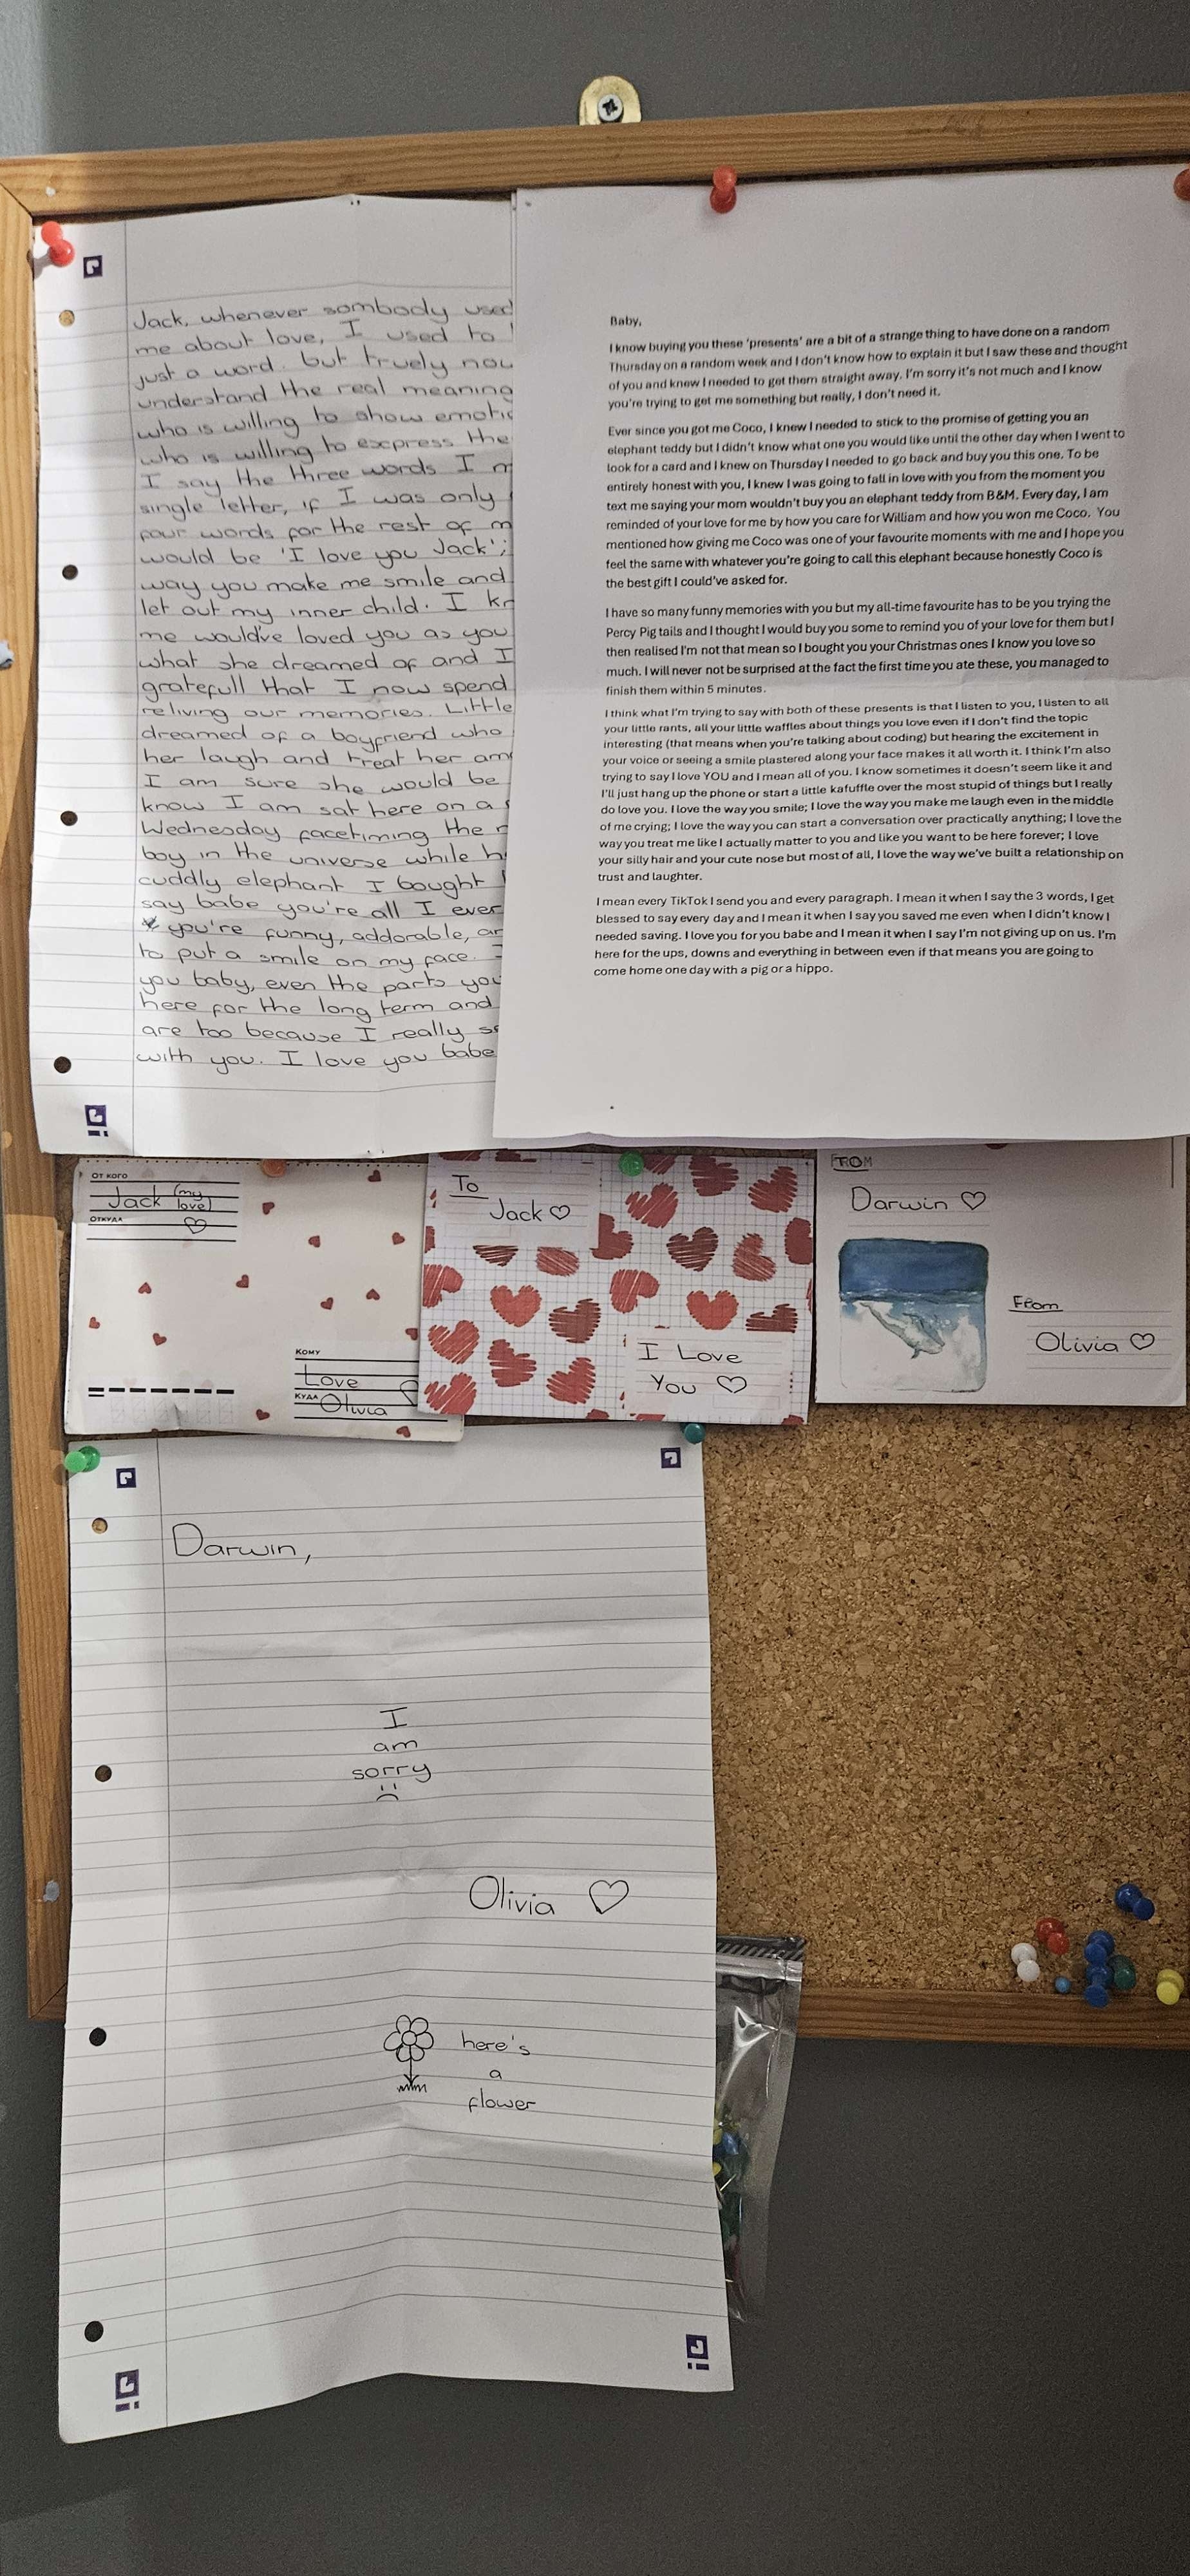 Jack, whenever sombody used
me about love, I used to
just a word. but truely now
understand the real meaning
who is willing to show emotic
who is willing to express the
I say the three words I m
single letter, if I was only
four words for the rest of m
would be 'I love you Jack';
way you make me smile and
let out my inner child. I kr
me would've loved you as you
what she dreamed of and I
gratefull that I now spend
reliving our memories. Little
dreamed of a boyfriend who
her laugh and treat her am
I am sure she would be
know I am sat here on a
Wednesday facetiming the
boy in the universe while h
cuddly elephant I bought
say babe you're all I ever
you're funny, addorable, ar
to put a smile on my face.
you baby, even the parts you
here for the long term and
are too because I really se
with you. I love you babe
Baby,
I know buying you these 'presents' are a bit of a strange thing to have done on a random
Thursday on a random week and I don't know how to explain it but I saw these and thought
of you and knew I needed to get them straight away. I'm sorry it's not much and I know
you're trying to get me something but really, I don't need it.
Ever since you got me Coco, I knew I needed to stick to the promise of getting you an
elephant teddy but I didn't know what one you would like until the other day when I went to
look for a card and I knew on Thursday I needed to go back and buy you this one. To be
entirely honest with you, I knew I was going to fall in love with you from the moment you
text me saying your mom wouldn't buy you an elephant teddy from B&M. Every day, I am
reminded of your love for me by how you care for William and how you won me Coco. You
mentioned how giving me Coco was one of your favourite moments with me and I hope you
feel the same with whatever you're going to call this elephant because honestly Coco is
the best gift I could've asked for.
I have so many funny memories with you but my all-time favourite has to be you trying the
Percy Pig tails and I thought I would buy you some to remind you of your love for them but I
then realised I'm not that mean so I bought you your Christmas ones I know you love so
much. I will never not be surprised at the fact the first time you ate these, you managed to
finish them within 5 minutes.
I think what I'm trying to say with both of these presents is that I listen to you, I listen to all
your little rants, all your little waffles about things you love even if I don't find the topic
interesting (that means when you're talking about coding) but hearing the excitement in
your voice or seeing a smile plastered along your face makes it all worth it. I think I'm also
trying to say I love YOU and I mean all of you. I know sometimes it doesn't seem like it and
I'll just hang up the phone or start a little kafuffle over the most stupid of things but I really
do love you. I love the way you smile; I love the way you make me laugh even in the middle
of me crying; I love the way you can start a conversation over practically anything; I love the
way you treat me like I actually matter to you and like you want to be here forever; I love
your silly hair and your cute nose but most of all, I love the way we've built a relationship on
trust and laughter.
I mean every TikTok I send you and every paragraph. I mean it when I say the 3 words, I get
blessed to say every day and I mean it when I say you saved me even when I didn't know I
needed saving. I love you for you babe and I mean it when I say I'm not giving up on us. I'm
here for the ups, downs and everything in between even if that means you are going to
come home one day with a pig or a hippo.
От кого
Jack (my love)
Откуда
Кому
Love
Куда
Olivia
To
Jack
I Love
You
TO
Darwin
From
Olivia
Darwin,
I
am
sorry
Olivia
here's
a
flower